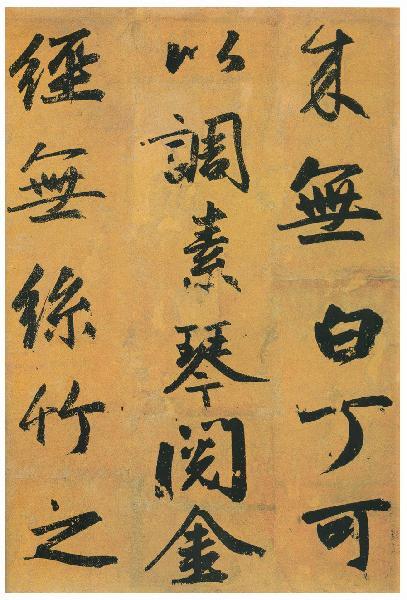 来無白丁可
以調素琴閱金
經無絲竹之